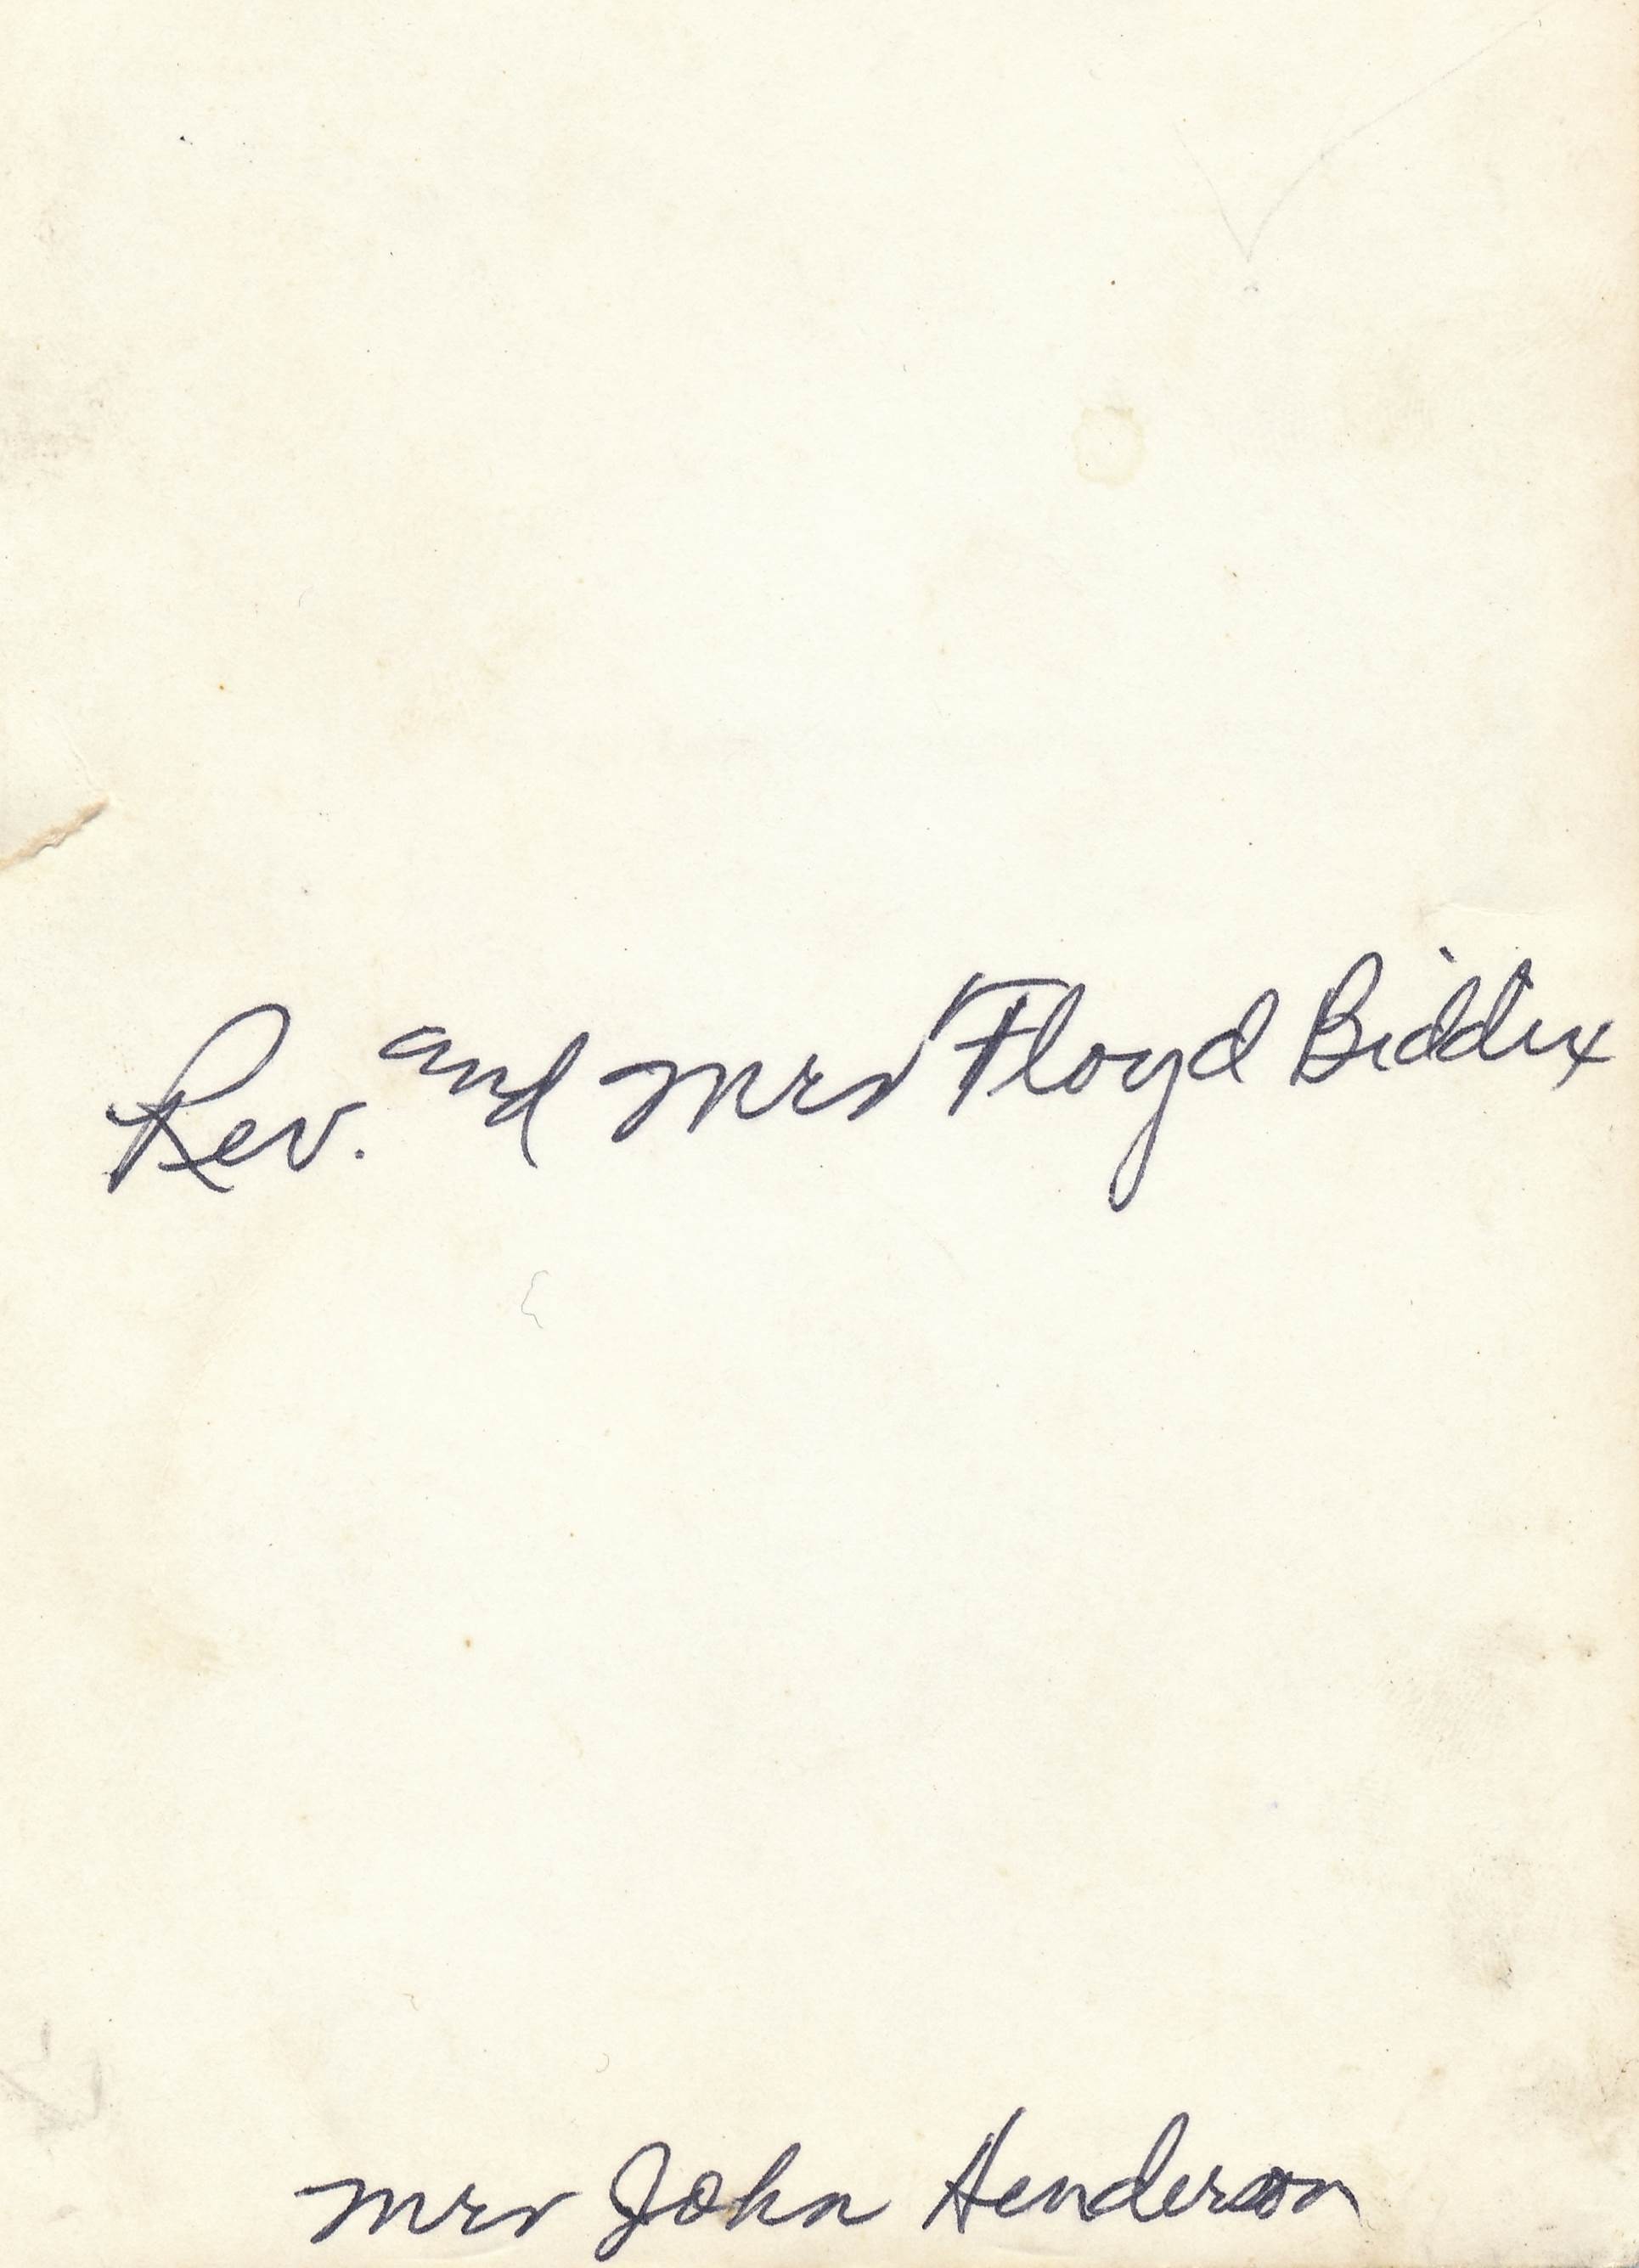 Rev. and Mrs Floyd Biddix
Mrs John Henderson